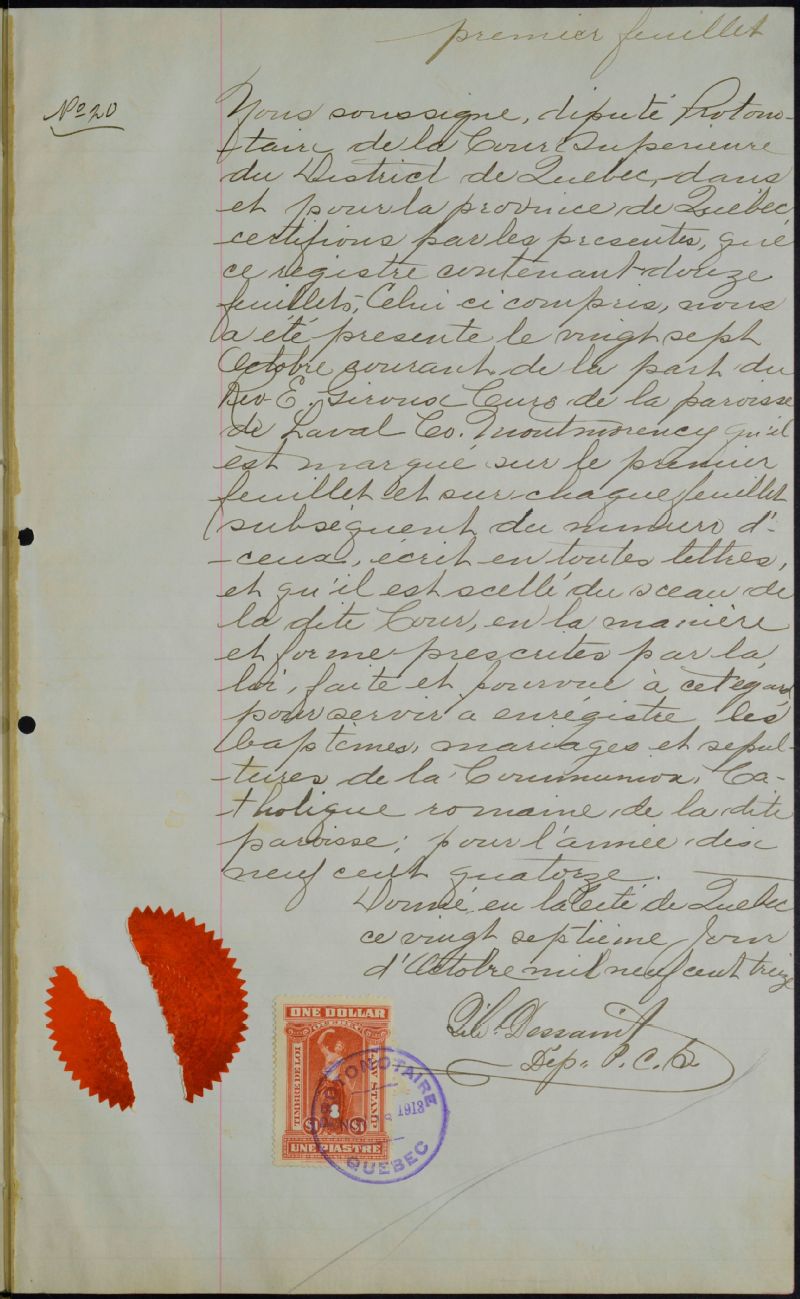 premier feuillet
No 20
Nous soussigné, député Protono-
-taire de la Cour Supérieure
du District de Québec, dans
et pour la province de Québec
certifions par les presentes, que
ce régistre contenant douze
feuillets, Celui ci compris, nous
a été présente le vingt sept
Octobre courant de la part du
Rev E. Giroux Curé de la paroisse
de Laval Co. Montmorency qu'il
est marqué sur le premier
feuillet et sur chaque feuillet
subséquent du numero d'-
-ceux, écrit en toutes lettres,
et qu'il est scellé du sceau de
la dite Cour, en la manière
et forme prescrites par la
loi, faite et pourvue à cet égard
pour servir a enrégistré les
baptêmes, mariages et sépul-
-tures de la Communion, Ca-
-tholique romaine de la dite
paroisse; pour l'année dix
neuf cent quatorze.
Donné en la Cité de Québec
ce vingt septieme Jour
d'Octobre mil neuf cent treize
Dessaint
Dep. P. C. S.
ONE DOLLAR
TIMBRE DE LOI
LAW STAMP
$1 $1
UNE PIASTRE
PROTONOTAIRE
1913
QUEBEC